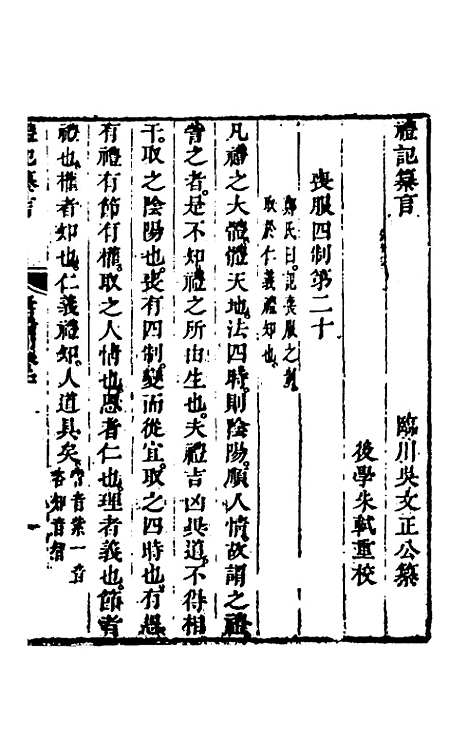 禮記纂言
臨川吳文正公纂
後學朱軾重校
喪服四制第二十
鄭氏曰記喪服之制
取於仁義禮知也
凡禮之大體體天地法四時則陰陽順人情故謂之禮
訾之者是不知禮之所由生也夫禮吉凶異道不得相
干取之陰陽也喪有四制變而從宜取之四時也有恩
有禮有節有權取之人情也恩者仁也理者義也節者
禮也權者知也仁義禮知人道具矣
訾音紫一音
知音智
禮記纂言